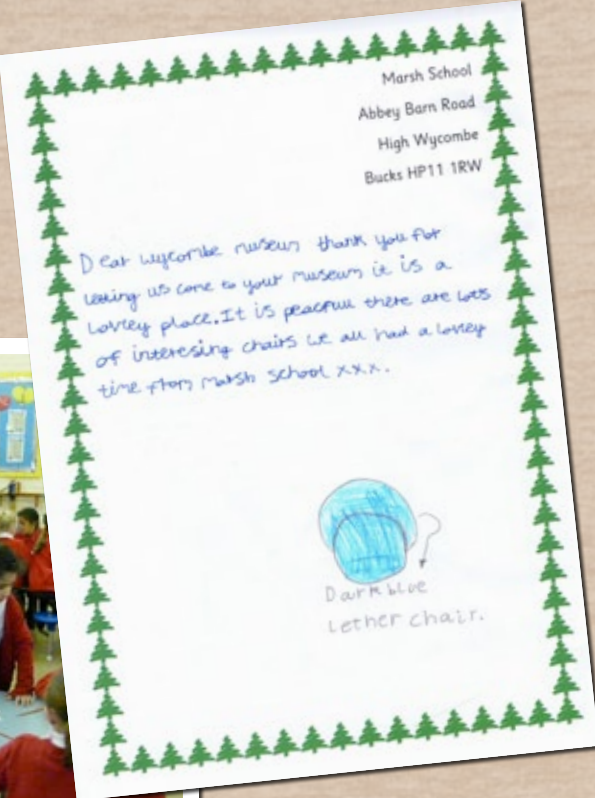 Marsh School
Abbey Barn Road
High Wycombe
Bucks HP11 1RW
Dear wycombe museum thank you for
letting us come to your museum it is a
lovley place. It is peacfull there are lots
of interesing chairs we all had a lovley
time from marsh school xxx.
Dark blue
Lether chair.